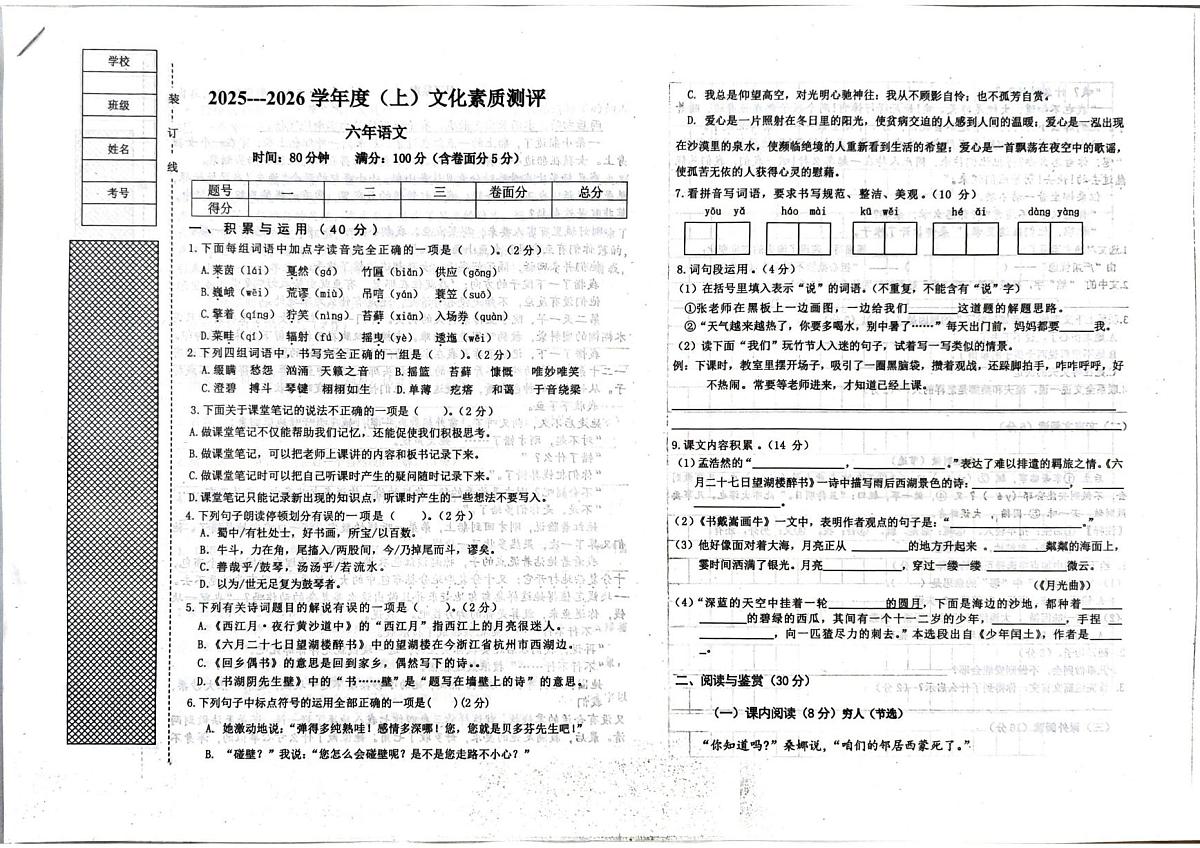 学校
班级
姓名
考号
装
订
线
2025---2026 学年度（上）文化素质测评
六年语文
时间：80分钟 满分：100分（含卷面分5分）
题号 一 二 三 卷面分 总分
得分
一、积累与运用（40分）
1.下面每组词语中加点字读音完全正确的一项是（ ）。（2分）
A.莱茵（lái） 戛然（gá） 竹匾（biǎn） 供应（gōng）
B.巍峨（wēi） 荒谬（miù） 吊唁（yán） 蓑笠（suō）
C.擎着（qíng） 狞笑（nìng） 苔藓（xiǎn） 入场券（quàn）
D.菜畦（qí） 辐射（fú） 摇曳（yè） 逶迤（wēi）
2.下列四组词语中，书写完全正确的一组是（ ）。（2分）
A.缀瞒 愁怨 汹涌 天籁之音 B.摇篮 苔藓 慷慨 唯妙唯笑
C.澄碧 搏斗 琴键 栩栩如生 D.单薄 疙瘩 和蔼 于音绕梁
3.下面关于课堂笔记的说法不正确的一项是（ ）。（2分）
A.做课堂笔记不仅能帮助我们记忆，还能促使我们积极思考。
B.做课堂笔记，可以把老师上课讲的内容和板书记录下来。
C.做课堂笔记时可以把自己听课时产生的疑问随时记录下来。
D.课堂笔记只能记录新出现的知识点，听课时产生的一些想法不要写入。
4.下列句子朗读停顿划分有误的一项是（ ）。（2分）
A. 蜀中/有杜处士，好书画，所宝/以百数。
B. 牛斗，力在角，尾搐入/两股间，今/乃掉尾而斗，谬矣。
C. 善哉乎/鼓琴，汤汤乎/若流水。
D. 以为/世无足复为鼓琴者。
5.下列有关诗词题目的解说有误的一项是（ ）。（2分）
A.《西江月·夜行黄沙道中》的“西江月”指西江上的月亮很迷人。
B.《六月二十七日望湖楼醉书》中的望湖楼在今浙江省杭州市西湖边。
C.《回乡偶书》的意思是回到家乡，偶然写下的诗。。
D.《书湖阴先生壁》中的“书……壁”是“题写在墙壁上的诗”的意思。
6.下列句子中标点符号的运用全部正确的一项是( )(2分)
A. 她激动地说：“弹得多纯熟哇！感情多深哪！您，您就是贝多芬先生吧！”
B. “碰壁？”我说：“您怎么会碰壁呢？是不是您走路不小心？”
C. 我总是仰望高空，对光明心驰神往；我从不顾影自怜；也不孤芳自赏。
D. 爱心是一片照射在冬日里的阳光，使贫病交迫的人感到人间的温暖；爱心是一泓出现
在沙漠里的泉水，使濒临绝境的人重新看到生活的希望；爱心是一首飘荡在夜空中的歌谣，
使孤苦无依的人获得心灵的慰藉。
7.看拼音写词语，要求书写规范、整洁、美观。（10 分）
yōu yǎ háo mài kū wěi hé ǎi dàng yàng
8.词句段运用。（4分）
（1）在括号里填入表示“说”的词语。（不重复，不能含有“说”字）
①张老师在黑板上一边画图，一边给我们________这道题的解题思路。
②“天气越来越热了，你要多喝水，别中暑了……”每天出门前，妈妈都要_____我。
（2）读下面“我们”玩竹节人入迷的句子，试着写一写类似的情景。
例：下课时，教室里摆开场子，吸引了一圈黑脑袋，攒着观战，还跺脚拍手，咋咋呼呼，好
不热闹。常要等老师进来，才知道已经上课。
9.课文内容积累。（14 分）
（1）孟浩然的“______________，______________。”表达了难以排遣的羁旅之情。《六
月二十七日望湖楼醉书》一诗中描写雨后西湖景色的诗：______________，______________
______________。
（2）《书戴嵩画牛》一文中，表明作者观点的句子是：“____________________。”
（3）他好像面对着大海，月亮正从 _________的地方升起来 。_________粼粼的海面上，
霎时间洒满了银光。月亮_________，穿过一缕一缕 _________微云。
（《月光曲》）
（4）“深蓝的天空中挂着一轮_________的圆月，下面是海边的沙地，都种着______
_______的碧绿的西瓜，其间有一个十一二岁的少年，_________，手捏
____________，向一匹猹尽力的刺去。”本选段出自《少年闰土》，作者是____
_。
二、阅读与鉴赏（30分）
（一）课内阅读（8分）穷人（节选）
“你知道吗？”桑娜说，“咱们的邻居西蒙死了。”